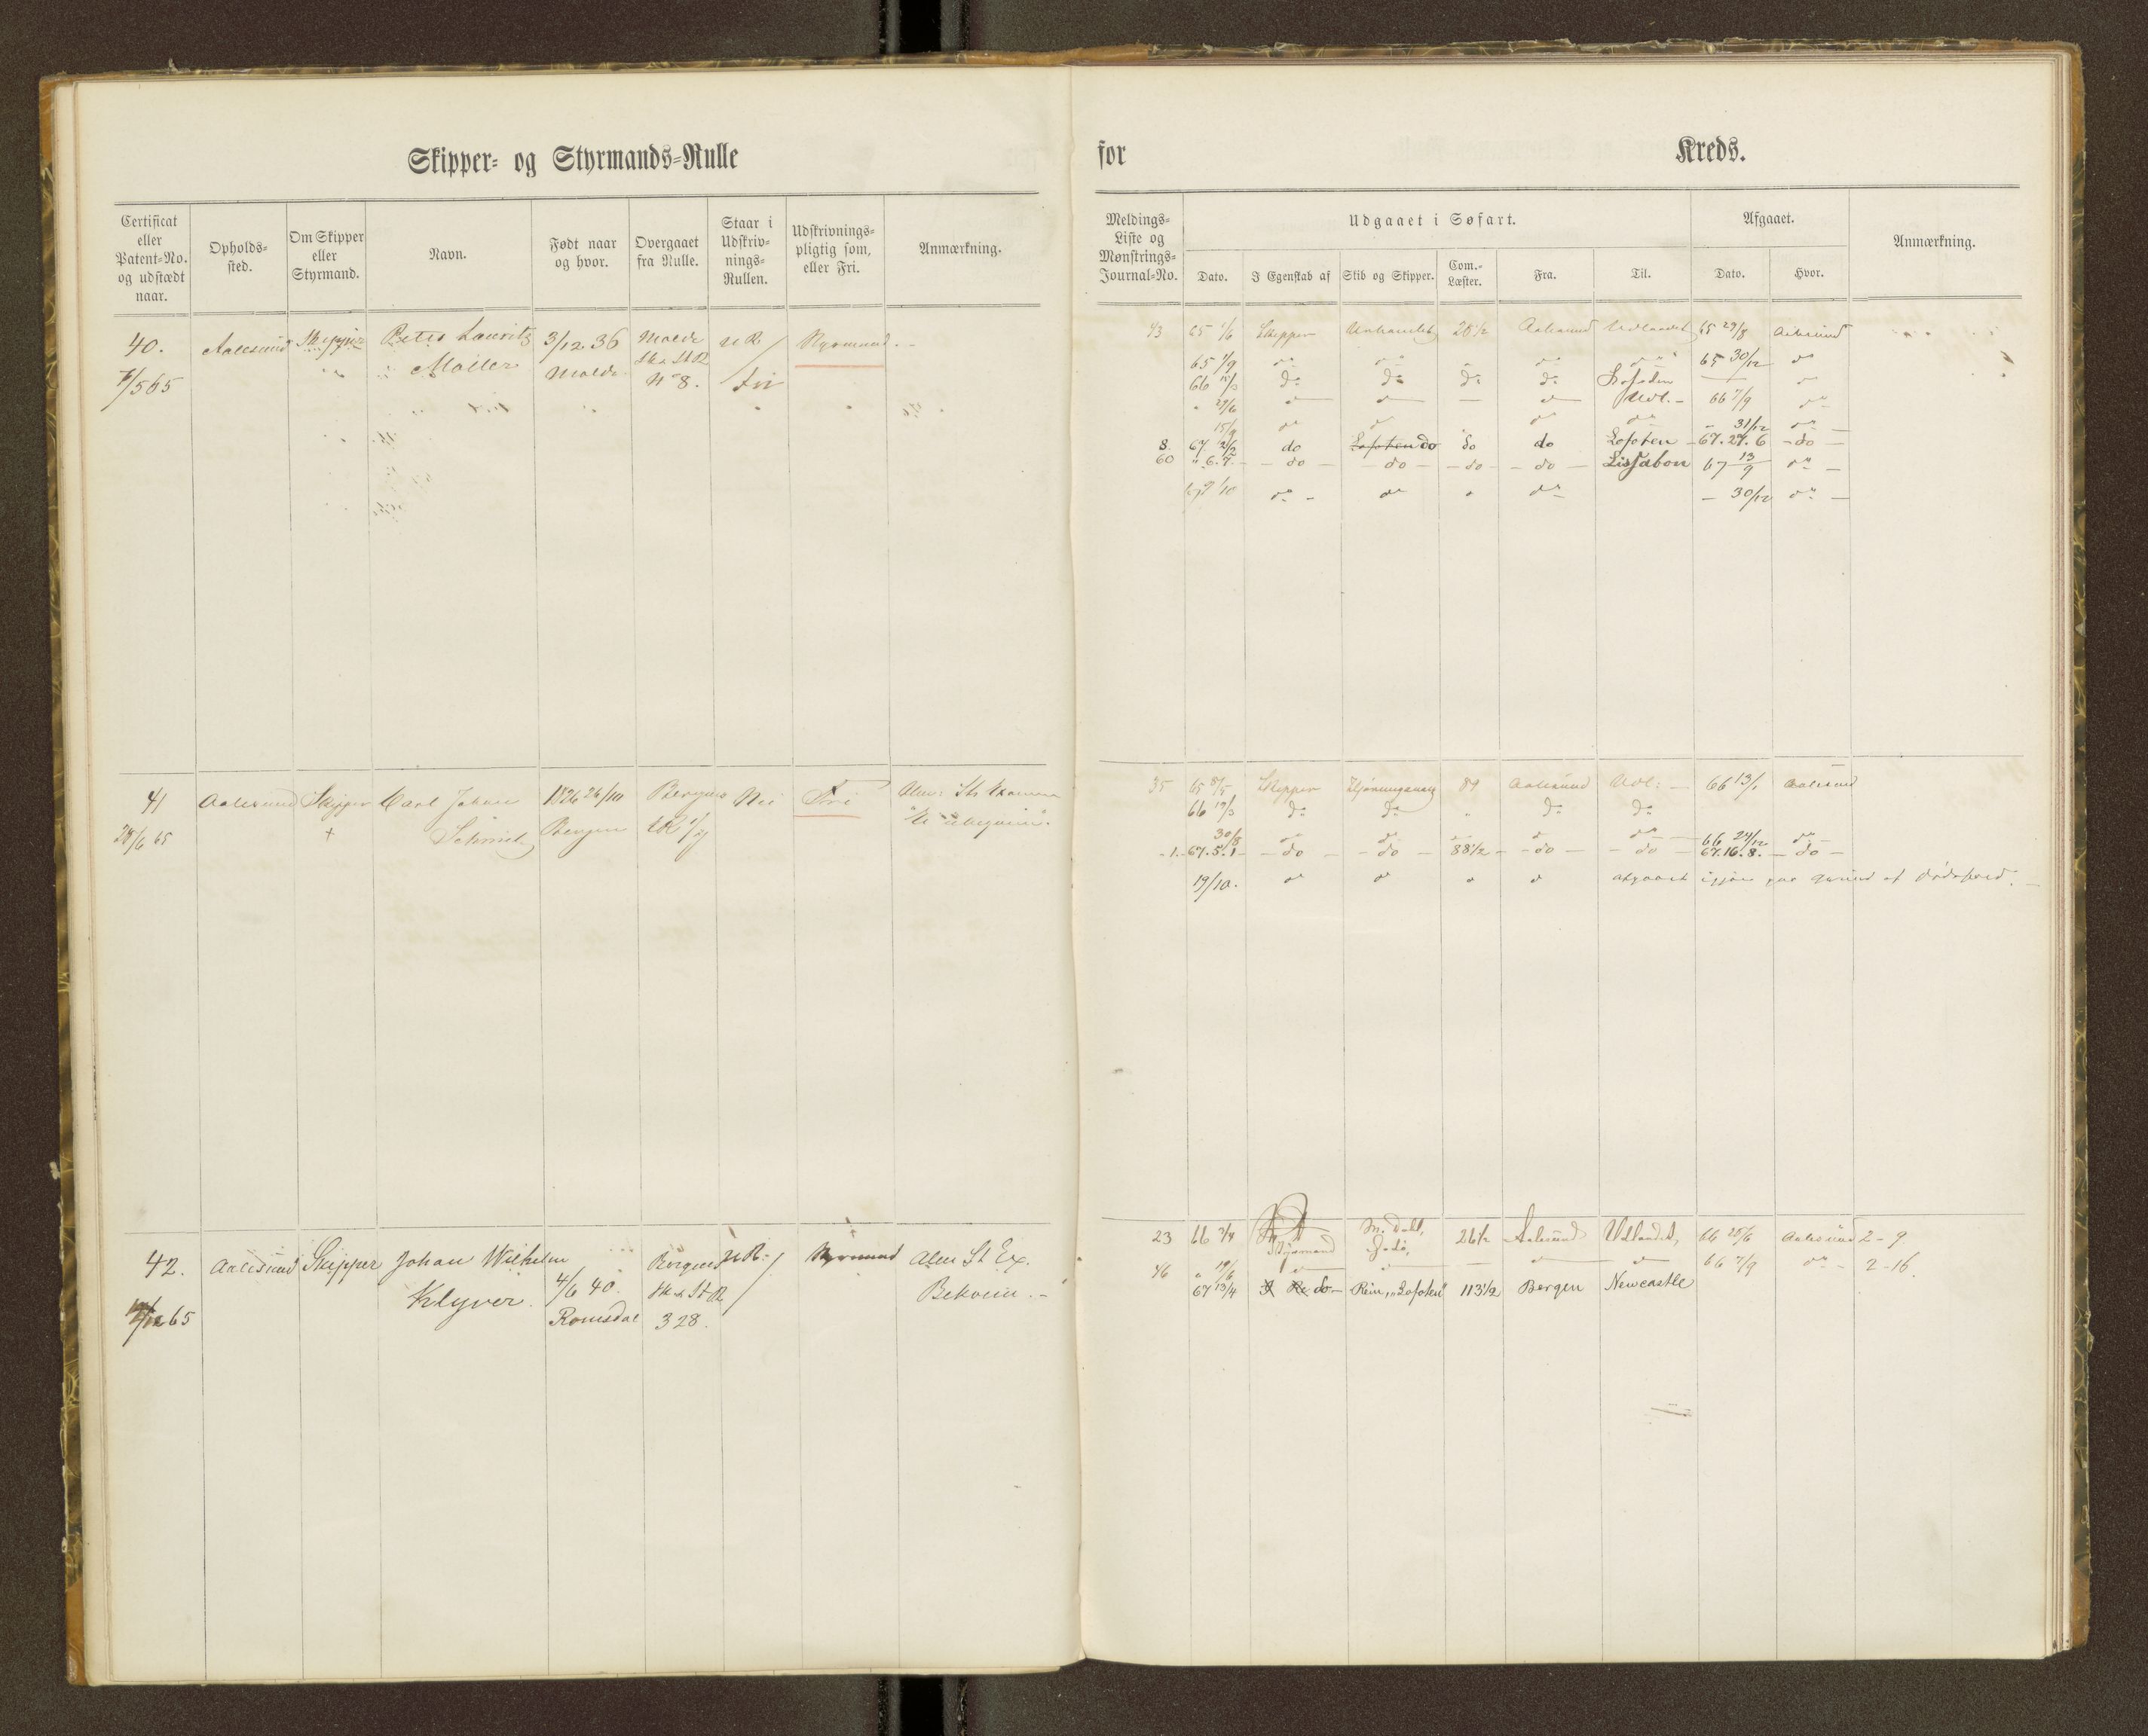 Skipper- og Styrmands-Rulle
Certificat eller Patent-No. og udstædt naar.
Opholds-sted.
Om Skipper eller Styrmand.
Navn.
Født naar og hvor.
Overgaaet fra Rulle.
Staar i Udskriv-nings-Rullen.
Udskrivnings-pligtig som, eller Fri.
Anmærkning.
40. Aalesund Skipper Peter Lauritz 3/12 36 Molde UR
7/5 65 Møller Molde Sk & St R No 8. fri
41 Aalesund Skipper Carl Johan 1826 26/10 Bergens Nei Fri
28/6 65 + Schmidt Bergen
42. Aalesund Skipper Johan Wilhelm Bergens UR: Alm St Ex.
65 Klyver. 4/6 40. Sk & St R Bekvem.-
Romsdal 328.
for Kreds.
Meldings-Liste og Mønstrings-Journal-No.
Udgaaet i Søfart.
Dato.
I Egenskab af
Skib og Skipper.
Com.-Læster.
Fra.
Til.
Afgaaet.
Dato.
Hvor.
Anmærkning.
43 65 1/6 Skipper 26 1/2 Aalesund Udlandet 65 29/8 Aalesund
65 9/9 do do do do do 65 30/12 do
66 do do do do Lofoden do
" 29/6 do do do Udl. - 66 7/9 do
15/9 do do do do " 31/12 do
8. 67 12/2 do Lofoten do do do Lofoten - 67. 27. 6 - do -
60 " 6. 7. - do - - do - - do - - do - Lissabon 67 13/9 do -
1/10 do - do " do - 30/12 do -
35 65 8/5 Skipper 89 Aalesund Udl: - 66 13/1 Aalesund
66 19/3 do do " do do
30/8 do do do do do 66 24/12 do
- 1. - 67. 5. 1 - - do - - do - 88 1/2 - - do - - do - 67. 16. 8. - do -
19/10. do do do do afgaaet igjen paa Grund af Dødsfald. -
23 66 Styrmand 26 1/2 Aalesund Udlandet, 66 25/6 Aalesund 2 - 9
46 " 19/6 do do do do 66 7/9 do - 2 - 16.
67 13/4 do - Rein, "Lofoten" 113 1/2 Bergen Newcastle